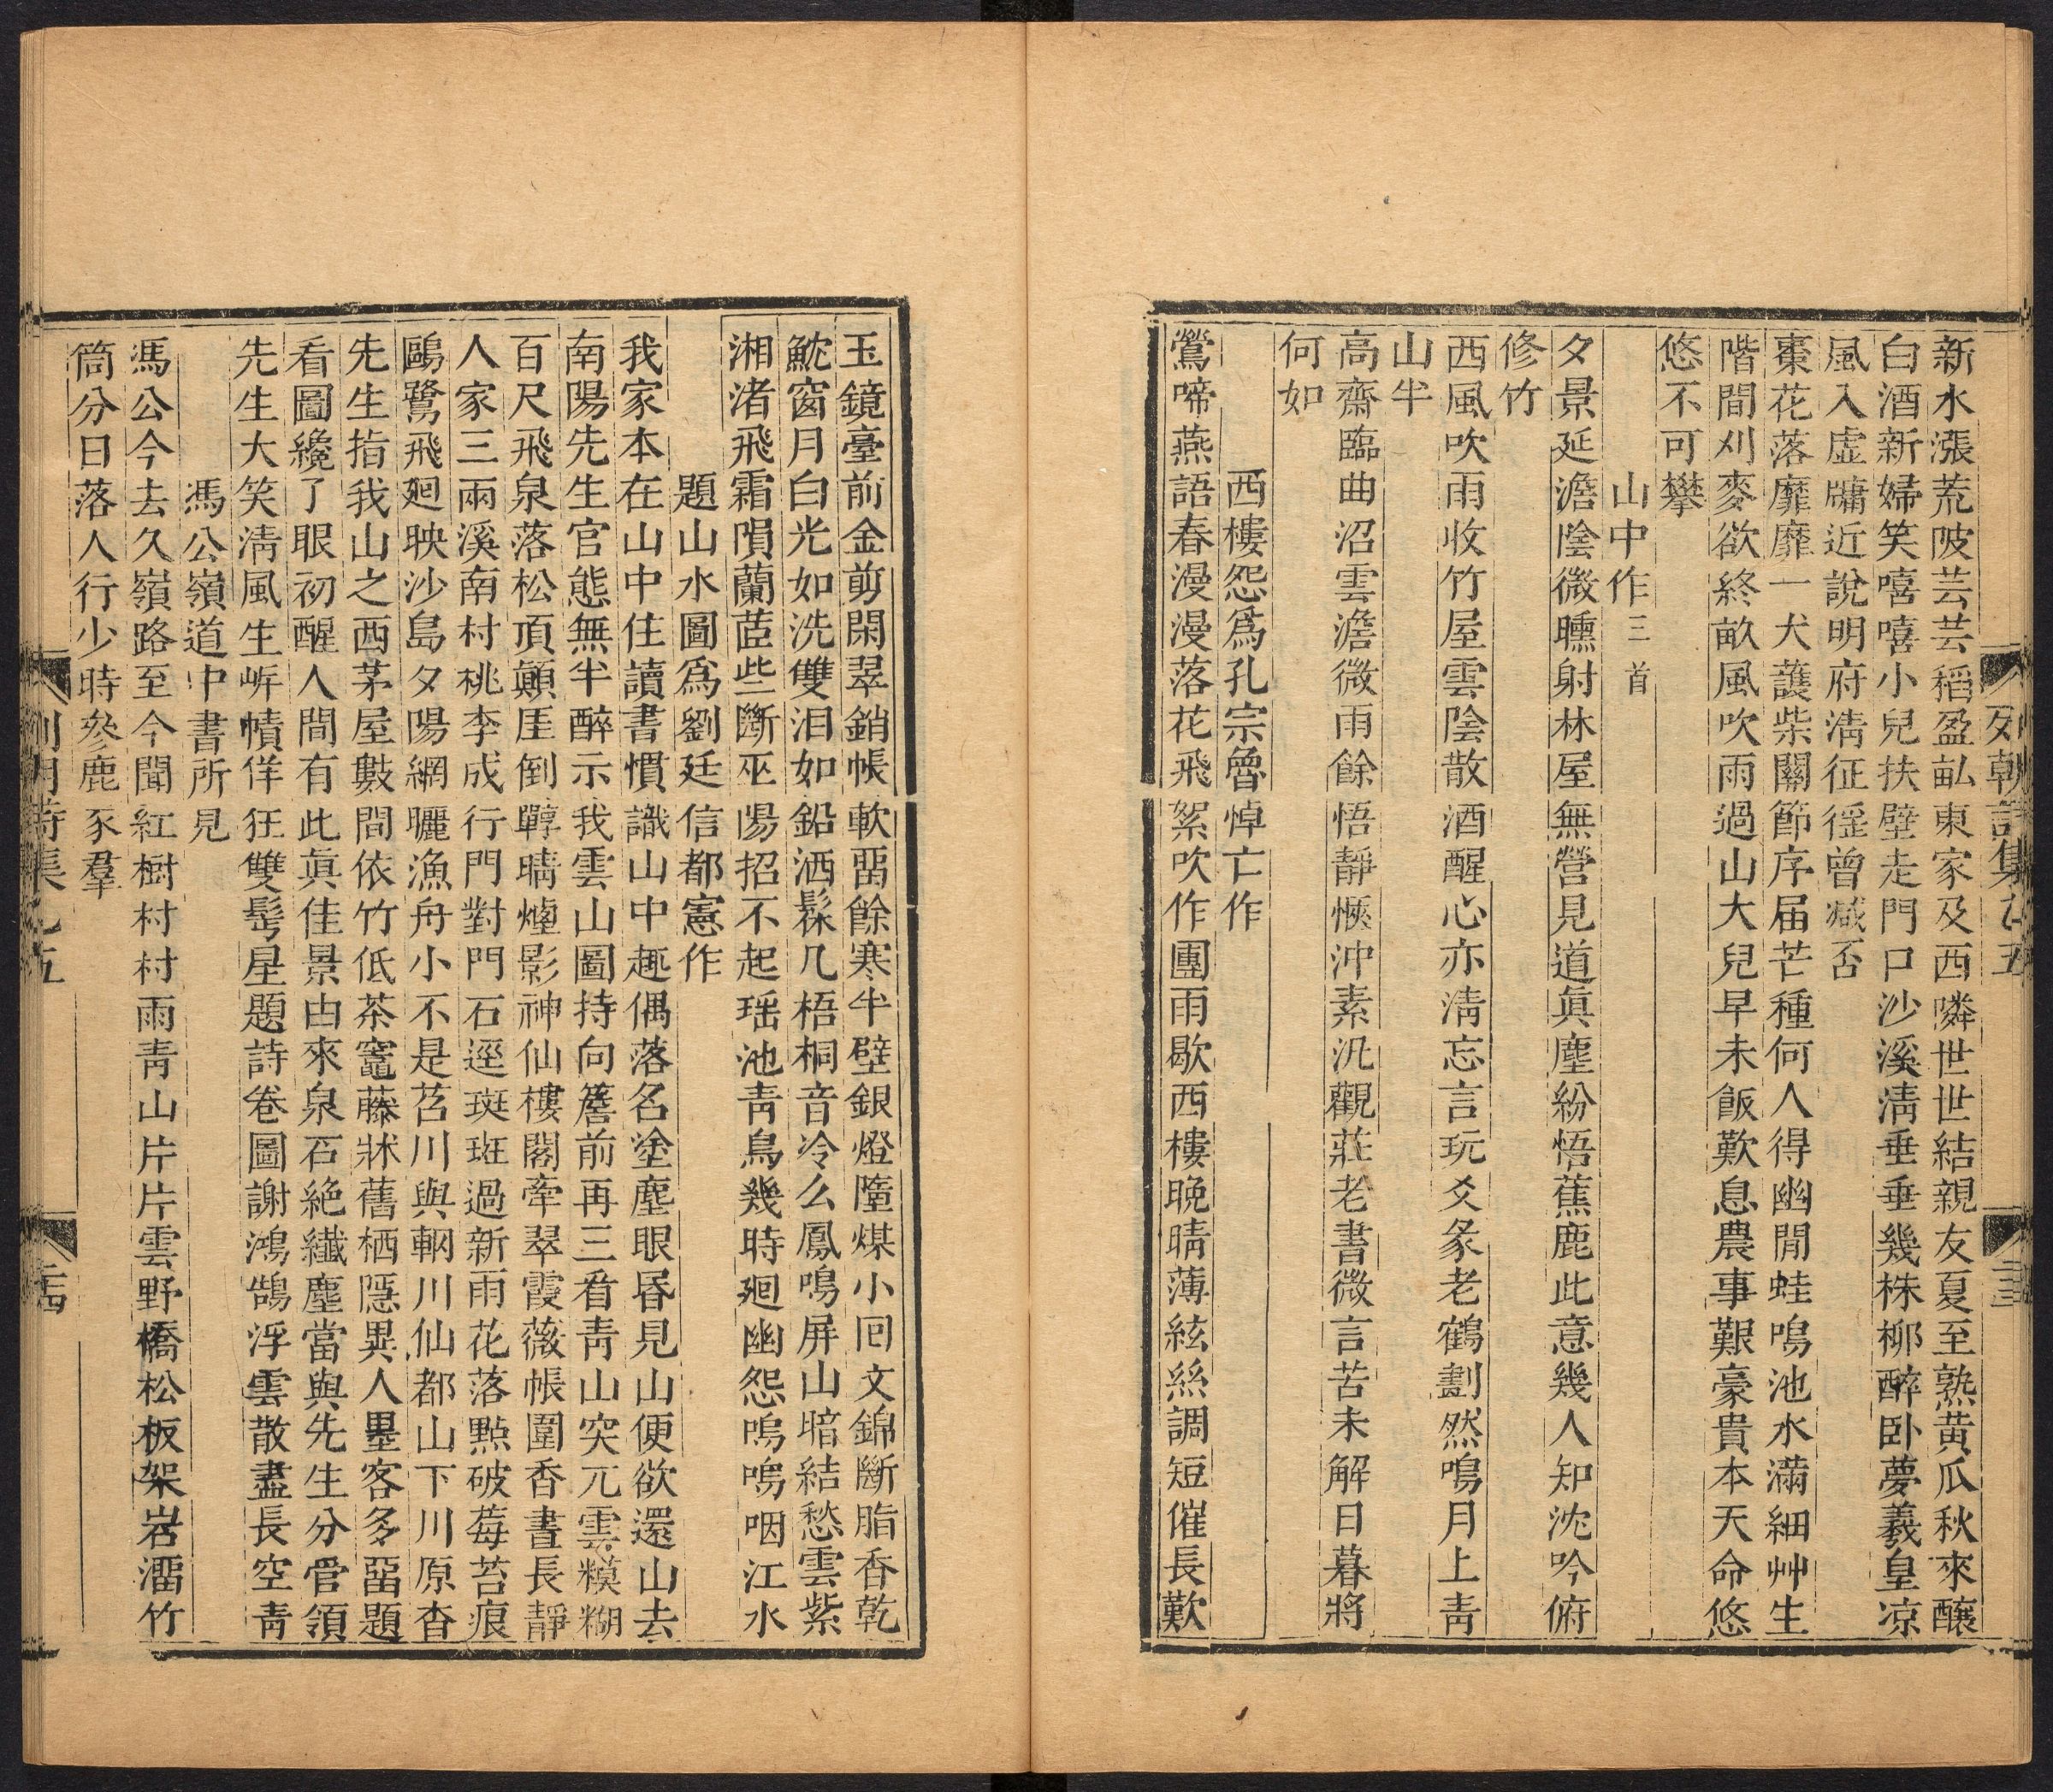 新水漲荒陂芸芸稻盈畝東家及西鄰世世結親友夏至熟黃瓜秋來釀
白酒新婦笑嘻嘻小兒扶壁走門口沙溪淸垂垂幾株柳醉卧夢羲皇凉
風入虛牖近說明府淸征徭曾减否
棗花落靡靡一犬護柴關節序届芒種何人得幽閒蛙鳴池水滿細艸生
階間刈麥欲終畝風吹雨過山大兒早未飯歎息農事艱豪貴本天命悠
悠不可攀
山中作三首
夕景延澹陰微曛射林屋無營見道眞塵紛悟蕉鹿此意幾人知沈吟俯
修竹
西風吹雨收竹屋雲陰散酒醒心亦淸忘言玩爻彖老鶴劃然鳴月上靑
山半
高齋臨曲沼雲澹微雨餘悟靜愜沖素汎觀莊老書微言苦未解日暮將
何如
西樓怨爲孔宗魯悼亡作
鶯啼燕語春漫漫落花飛絮吹作團雨歇西樓晚晴薄絃絲調短催長歎
玉鏡臺前金剪閑翠銷帳軟畱餘寒半壁銀燈墮煤小回文錦斷脂香乾
魫窗月白光如洗雙泪如鉛洒髹几梧桐音冷么鳳鳴屏山暗結愁雲紫
湘渚飛霜隕蘭茝些斷巫陽招不起瑶池靑鳥幾時廻幽怨嗚嗚咽江水
題山水圖爲劉廷信都憲作
我家本在山中住讀書慣識山中趣偶落名塗塵眼昏見山便欲還山去
南陽先生官態無半醉示我雲山圖持向簷前再三看靑山突兀雲糢糊
百尺飛泉落松頂顚厓倒嚲晴煙影神仙樓閣牽翠霞薇帳圍香晝長靜
人家三兩溪南村桃李成行門對門石逕斑斑過新雨花落點破莓苔痕
鷗鷺飛廻映沙島夕陽網曬漁舟小不是苕川與輞川仙都山下川原杳
先生指我山之西茅屋數間依竹低茶竈藤牀舊栖隱異人墨客多畱題
看圖纔了眼初醒人間有此眞佳景由來泉石絶纖塵當與先生分管領
先生大笑淸風生岸幘佯狂雙髩星題詩卷圖謝鴻鵠浮雲散盡長空靑
馮公嶺道中書所見
馮公今去久嶺路至今聞紅樹村村雨靑山片片雲野橋松板架岩溜竹
筒分日落人行少時參鹿豕羣